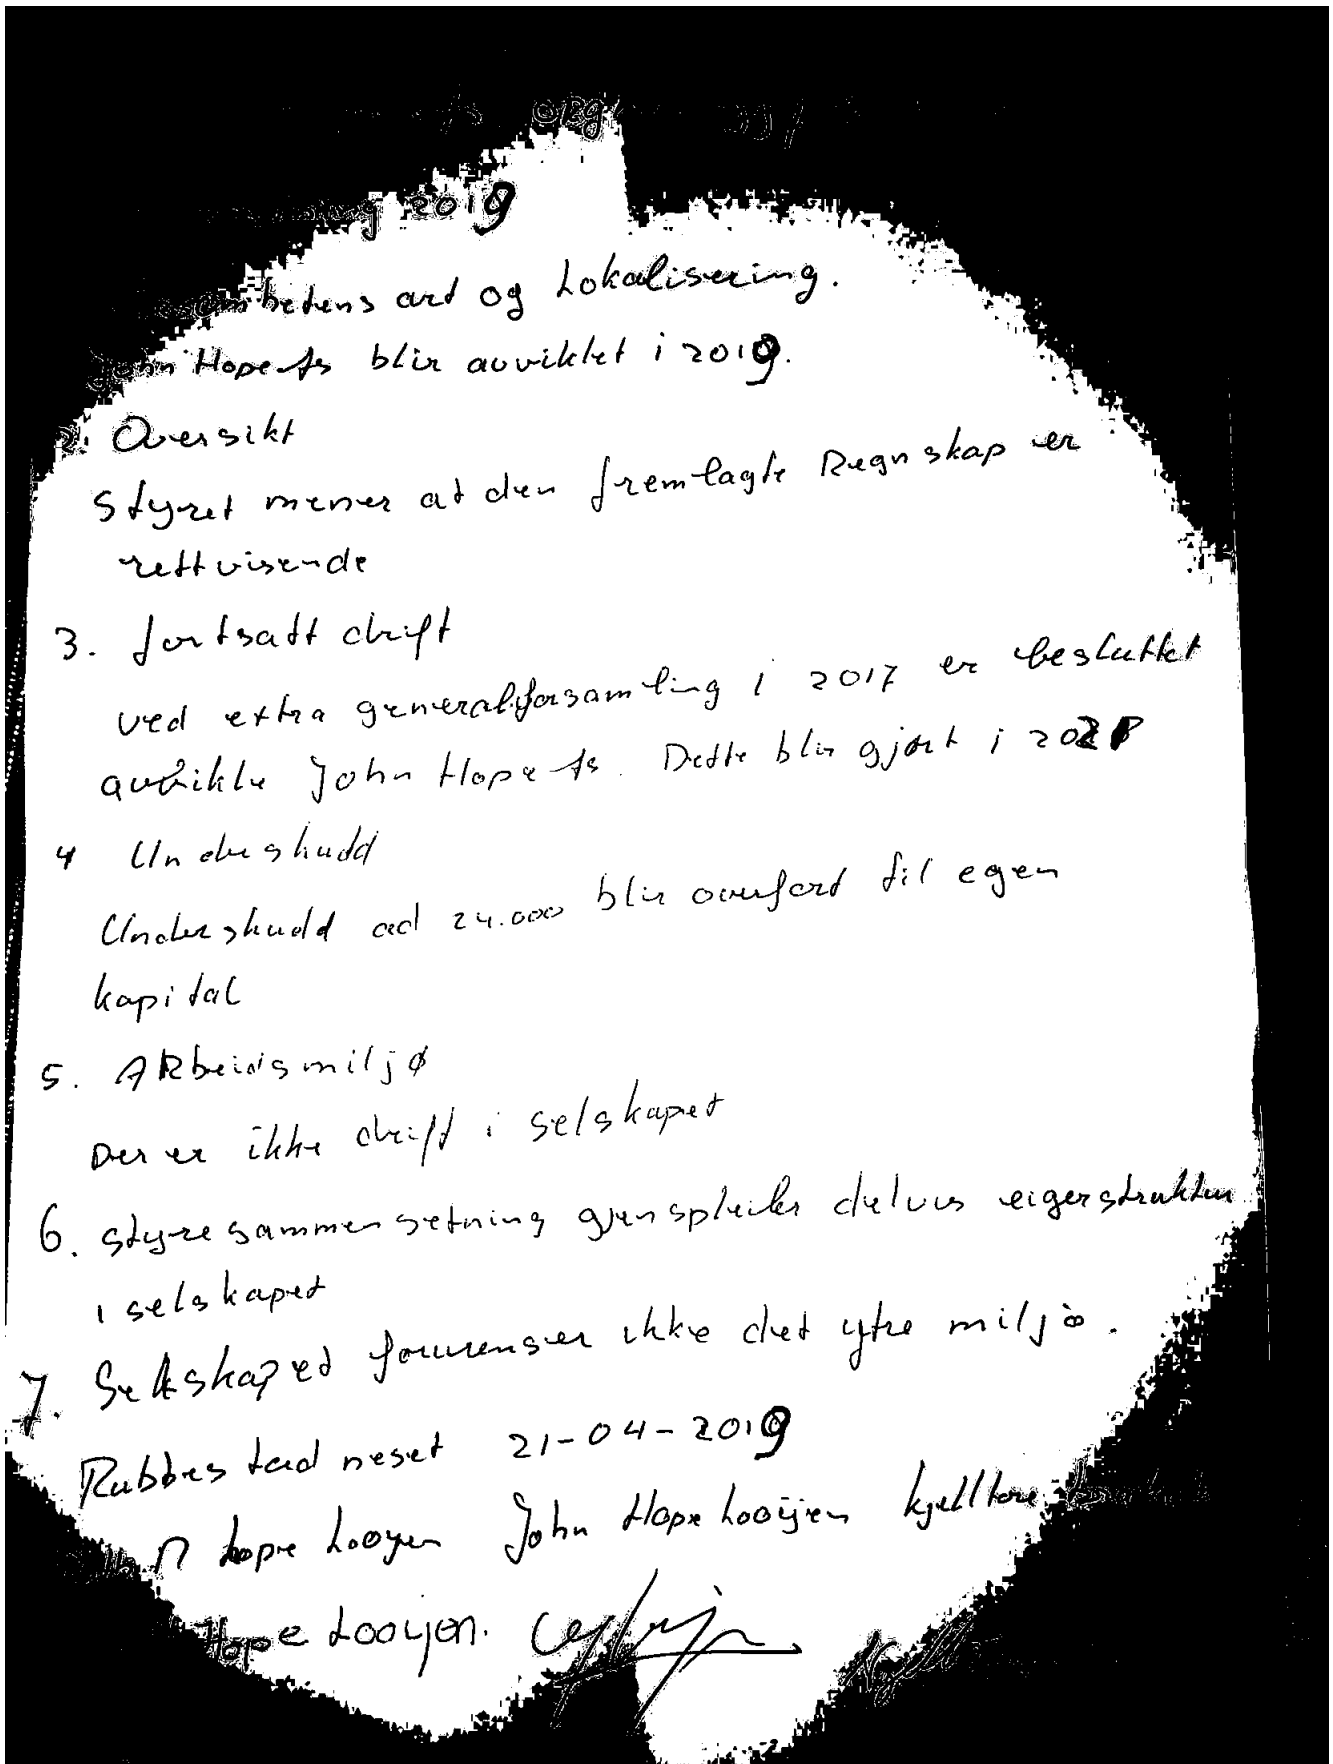 org
2019
betens art og Lokalisering.
John Hope As blir avviklet i 2019.
2. Oversikt
Styret mener at den fremlagte Regnskap er
rettvisende
3. fortsatt drift
ved extra generalforsamling i 2017 er besluttet
avvikle John Hope As. Dette blir gjort i
4 Underskudd
Underskudd ad 24.000 blir overført til egen
kapital
5. ARbeidsmiljø
Der er ikke drift i selskapet
6. styresammensetning gjenspeiler delvis eigerstruktur
i selskapet
7. Selskapet forurenser ikke det ytre miljø.
Rubbestadneset 21-04-2019
Hope Looyen John Hope Looijen kjelltore
Hope Looyen.